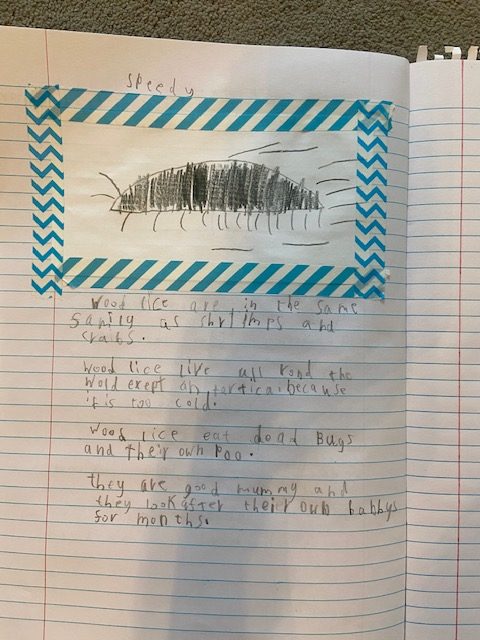 speedy
wood lice are in the same
samily as shrimps and
crabs.
wood lice live all rond the
wold exept an tortica because
it is too cold.
wood lice eat dead Bugs
and their own poo.
they are good mummy and
they look after their own babbys
for months.